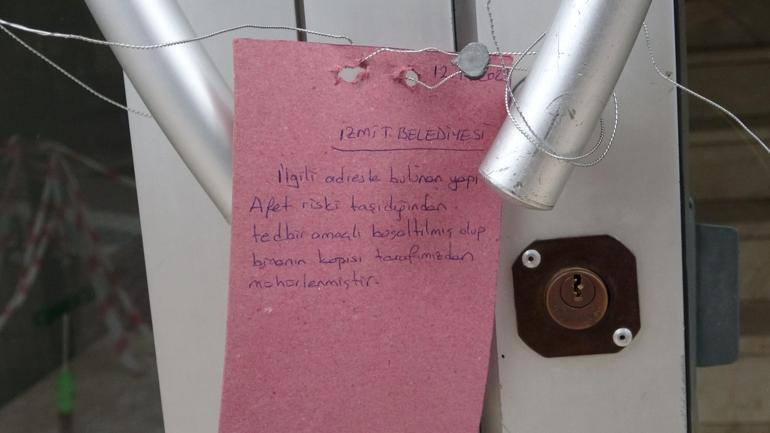 12
İZMİT BELEDİYESİ
İlgili adreste bulunan yapı
Afet riski taşıdığından
tedbir amaçlı boşaltılmış olup
binanın kapısı tarafımızdan
mühürlenmiştir.